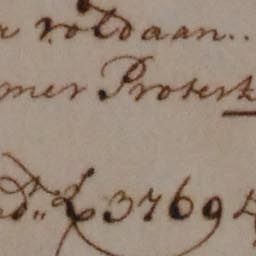 r voldaan..
mer Protest
d.,, £ 3769